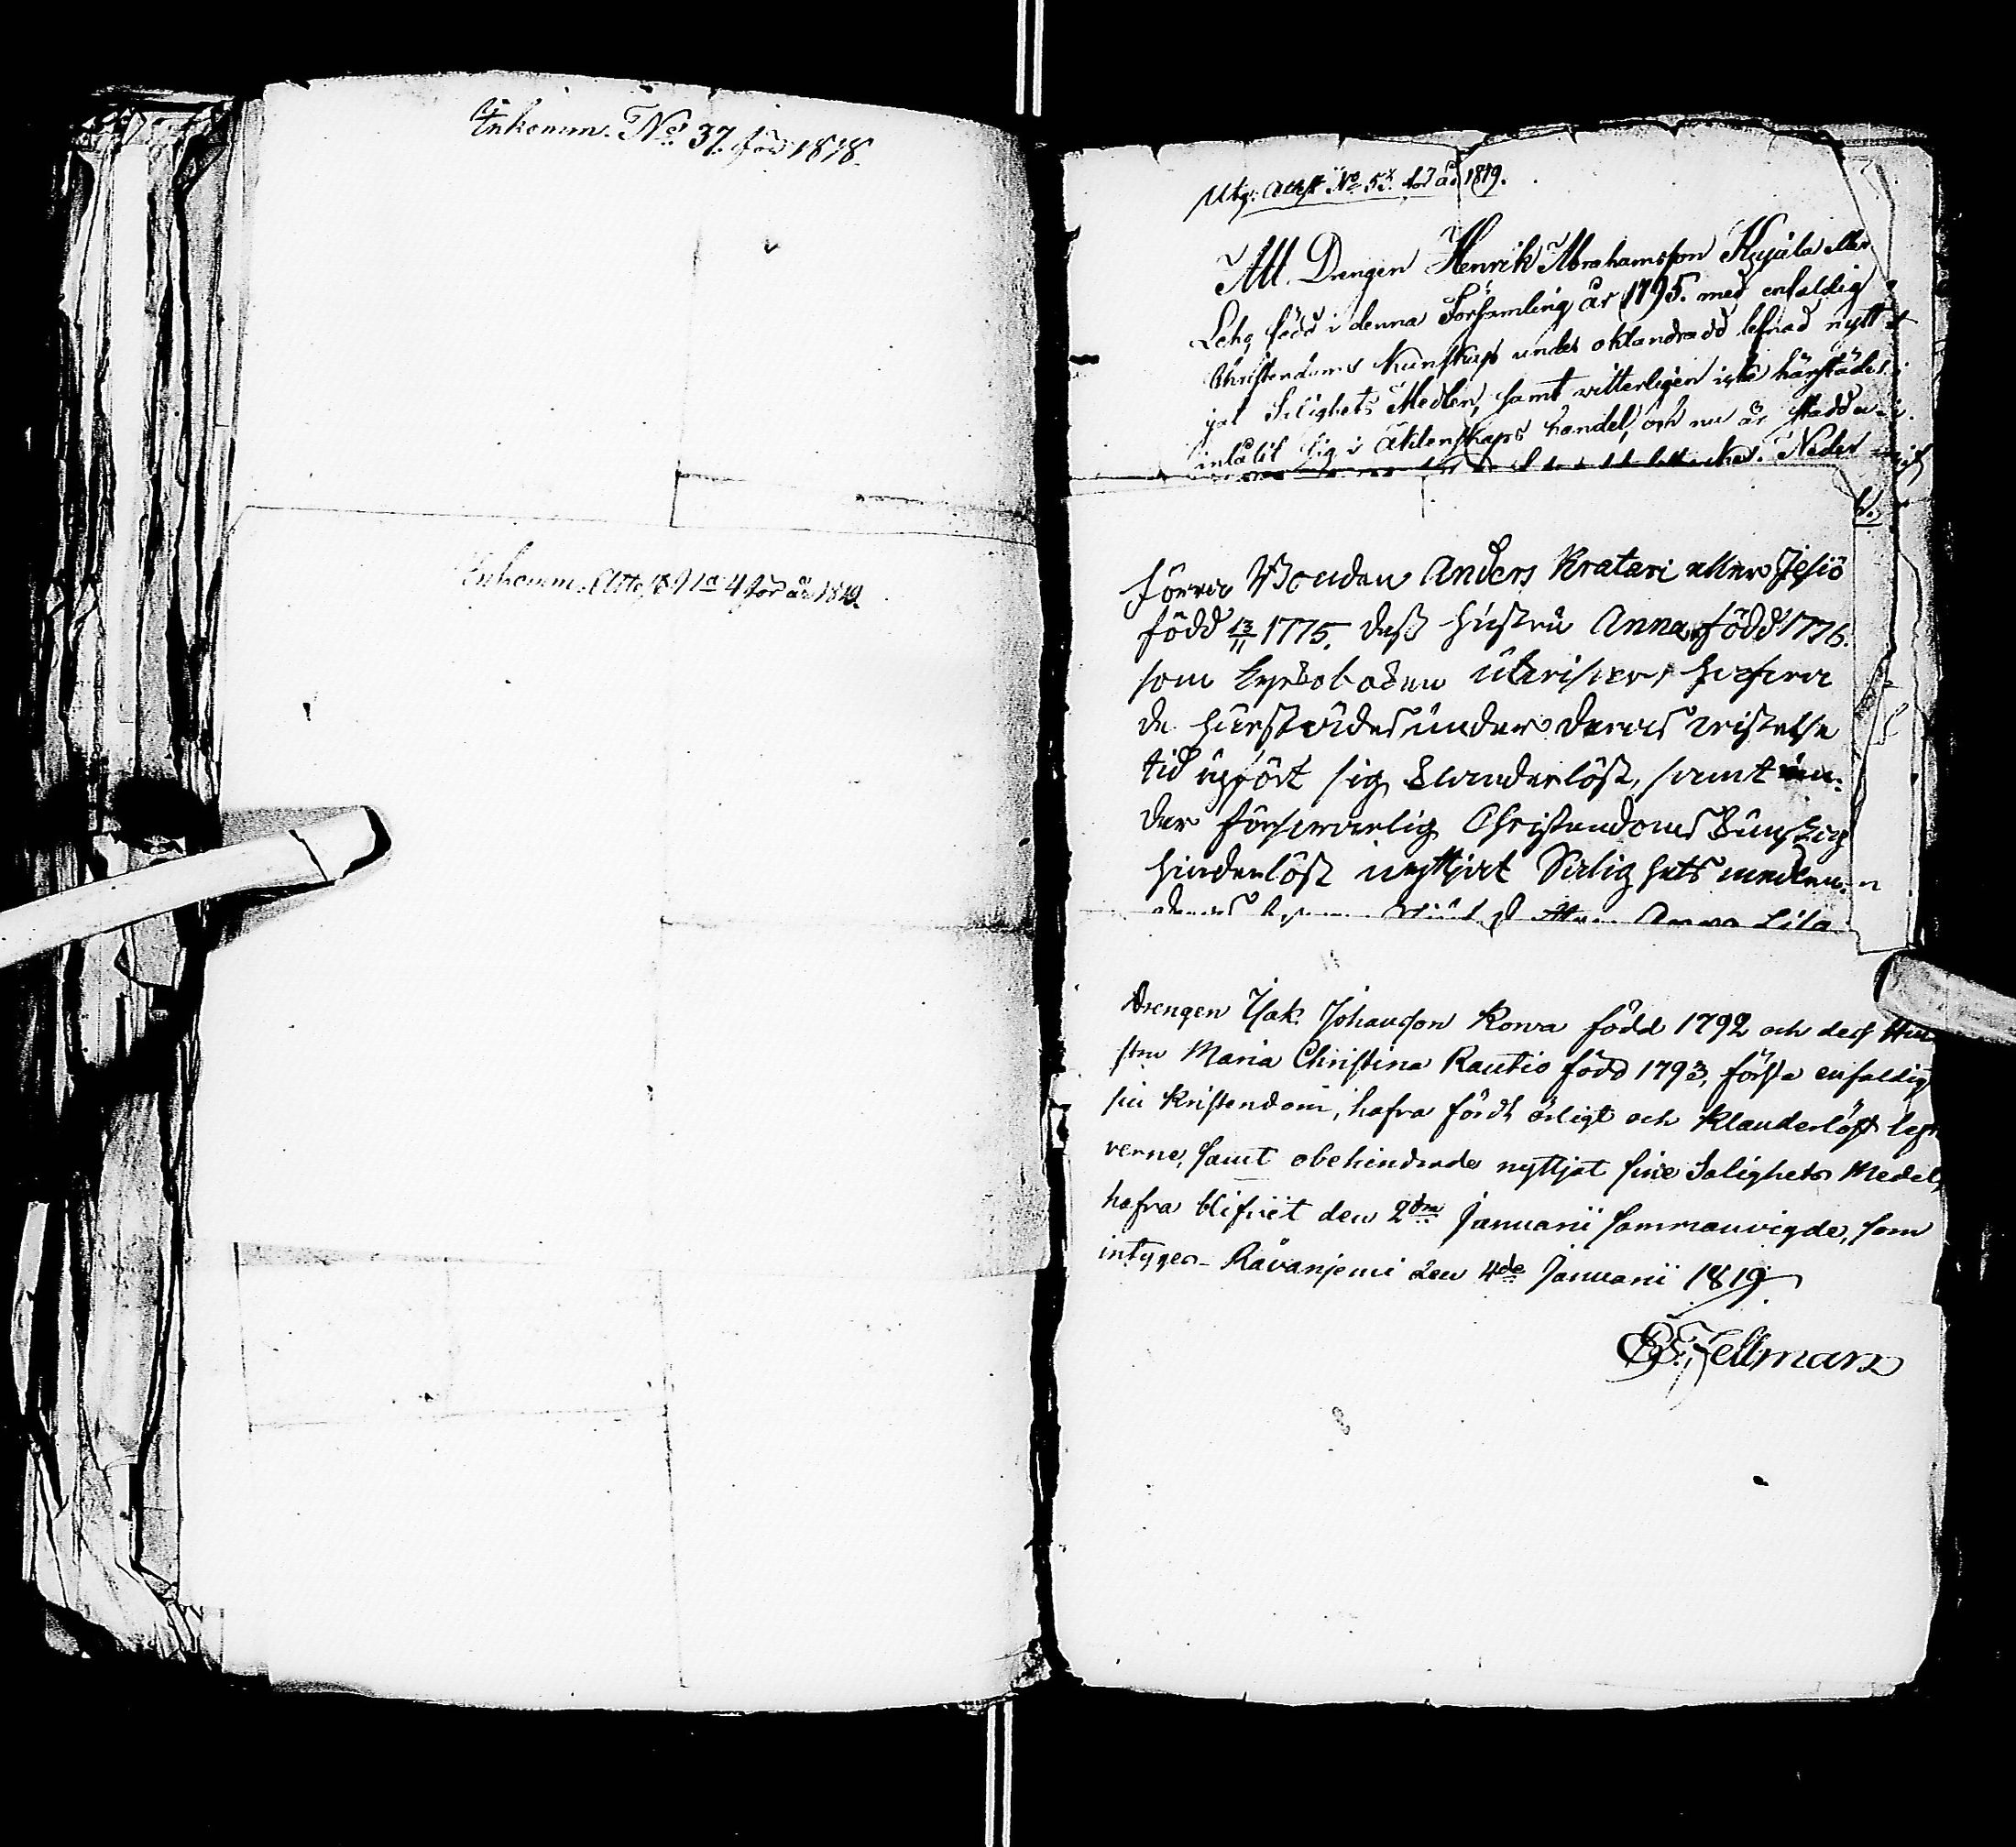 Inkomm. No 37. för 1818.
Inkomm. Atte, No 4 för år 1819.
Utg: Attest No 52. för år 1819.
Att Drengen Henrik Abrahamsson Kujala eller
Leho, född i denna Församling år 1795. med enfaldig
Christendoms Kunskap under oklandradd lefnad nytt-
jat Salighets Medlen, samt vitterligen icke härstädes
inlåtit sig i Äktenskaps handel, och nu är stadd
Neder
förra Bonden Anders Kratari eller Jesiö
född 13/11 1775. dess hustru Anna, född 1776.
som hafva
de härstädes under deras vistelse
tid upfört sig klanderlöst, samt un-
der försvarlig Christendoms Kunskap
hinderlöst nyttjat Salighets medlen.
Anna Lisa
Drengen Isak Johansson Kowa född 1792 och dess Hu
stru Maria Christina Rautio född 1793, förstå enfaldig
sin Kristendom, hafva fördt ärligt och klanderlöst lef
verne, samt obehindrade nyttjat sine Salighets Medel,
hafva blifvit den 2dra Januarii sammanvigde, som
intyges Råvanjemi den 4de Januarii 1819
Fellman